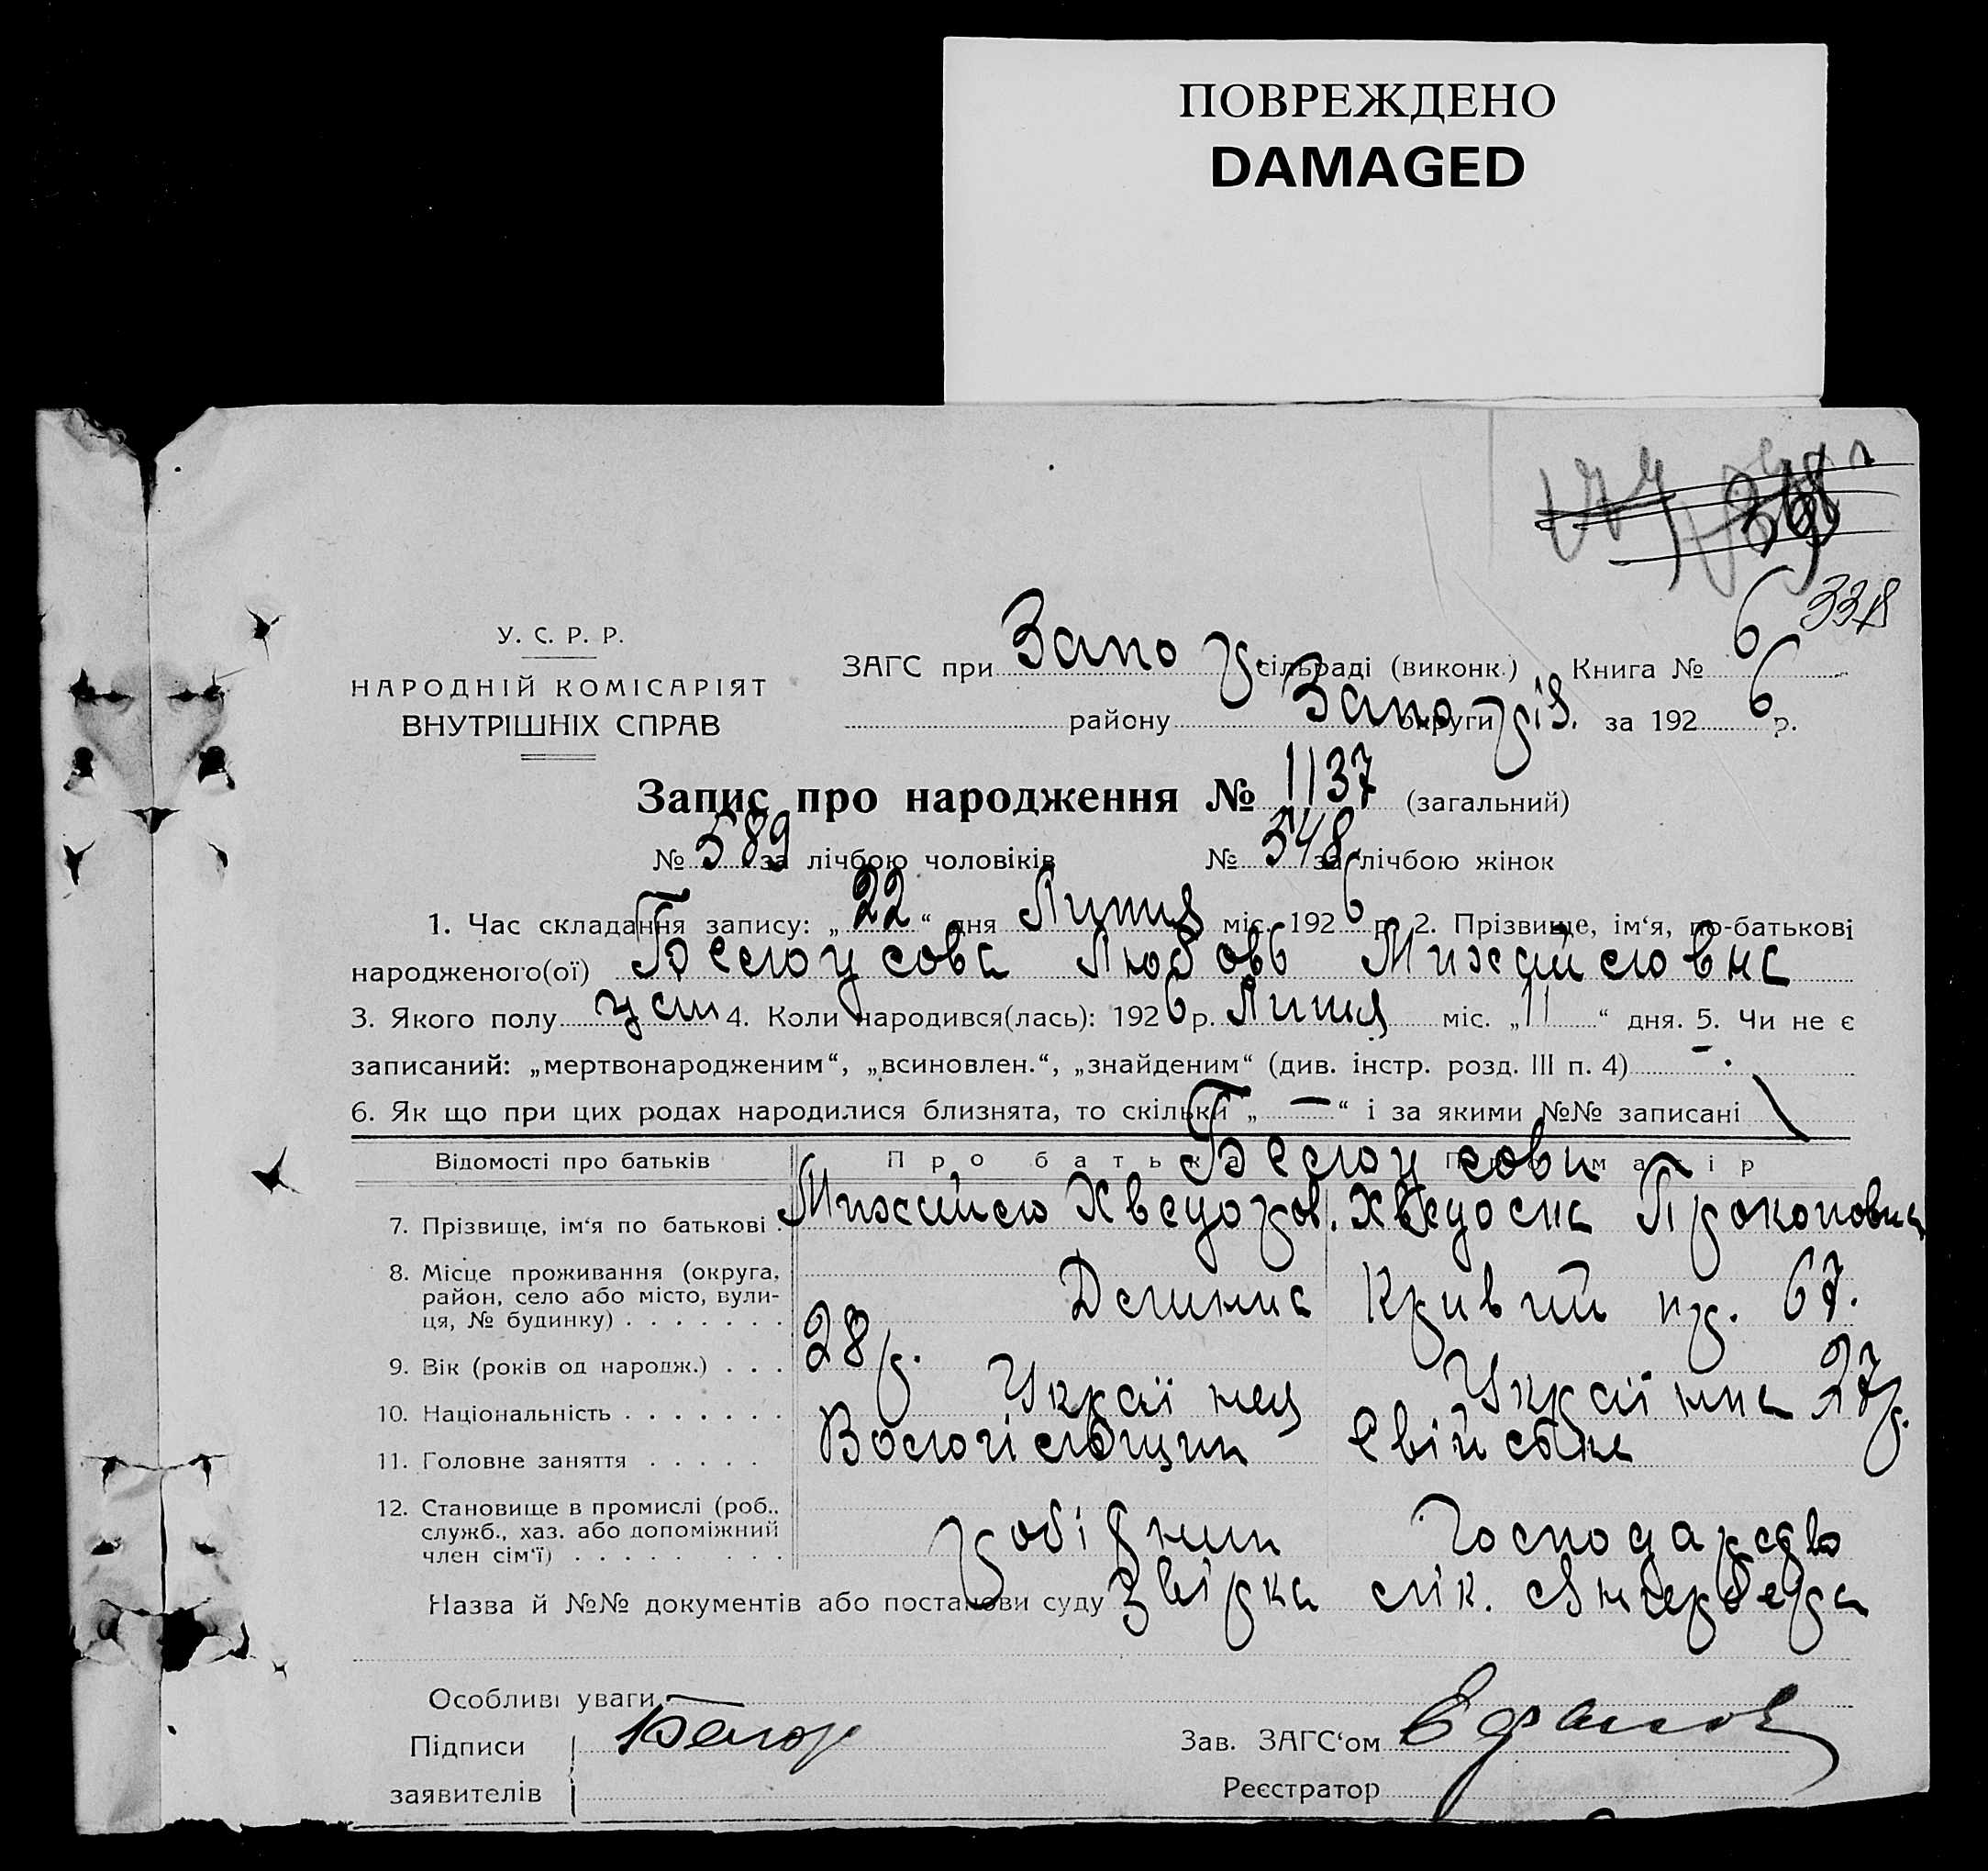 ПОВРЕЖДЕНО
DAMAGED
338
У. С. Р. Р.
НАРОДНІЙ КОМІСАРІЯТ
ВНУТРІШНІХ СПРАВ
ЗАГС при Запо р. сільраді (виконк.) Книга № 6
району Запо різ. округи за 192 6 р.
Запис про народження № 1137 (загальний)
№ 589 за лічбою чоловіків № 548 за лічбою жінок
1. Час складання запису: „ 22 “ дня Липця міс. 192 6 р. 2. Прізвище, ім‘я, по-батькові
народженого(ої) Белоусова Любовь Михайловна
3. Якого полу 4. Коли народився(лась): 192 6 р. Липця міс. „ 11 “ дня. 5. Чи не є
записаний: „мертвонародженим“, „всиновлен.“, „знайденим“ (див. інстр. розд. III п. 4) -.
6. Як що при цих родах народилися близнята, то скільки „ — “ і за якими №№ записані \
Відомості про батьків Про батька Про матір
Белоусови
7. Прізвище, ім‘я по батькові . Михайло Хведоров. Хведосиа Прокоповна
8. Місце проживання (округа,
район, село або місто, вули-
ця, № будинку) . . . . . . . Кривий пр. 67.
9. Вік (років од народж.) . . . 28 р. 27 р.
10. Національність . . . . . . . Украї нец Украї нка
11. Головне заняття . . . . . Свійське
12. Становище в промислі (роб.,
служб., хаз. або допоміжний
член сім‘ї) . . . . . . . . робітник Господарство
Назва й №№ документів або постанови суду Звірка лік.
Особливі уваги —
Підписи Белоу Зав. ЗАГС‘ом
заявителів Реєстратор